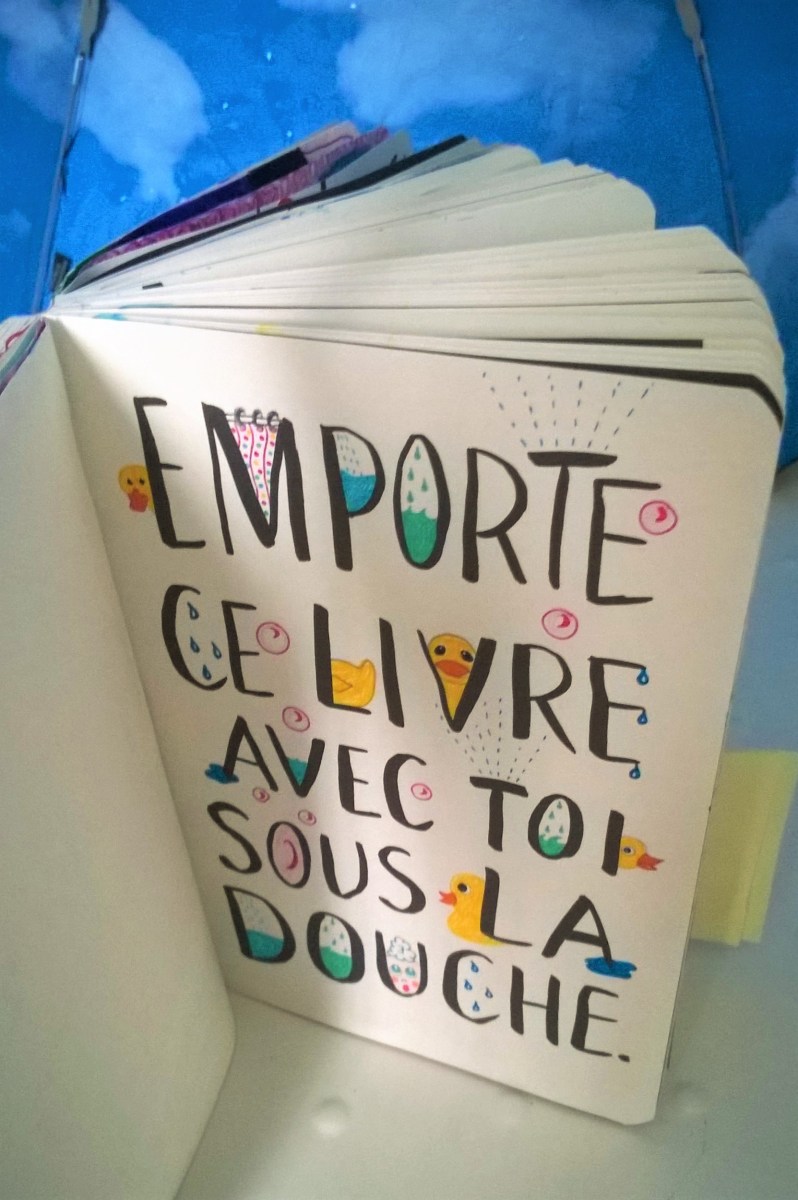 EMPORTE
CE LIVRE
AVEC TOI
SOUS LA
DOUCHE.